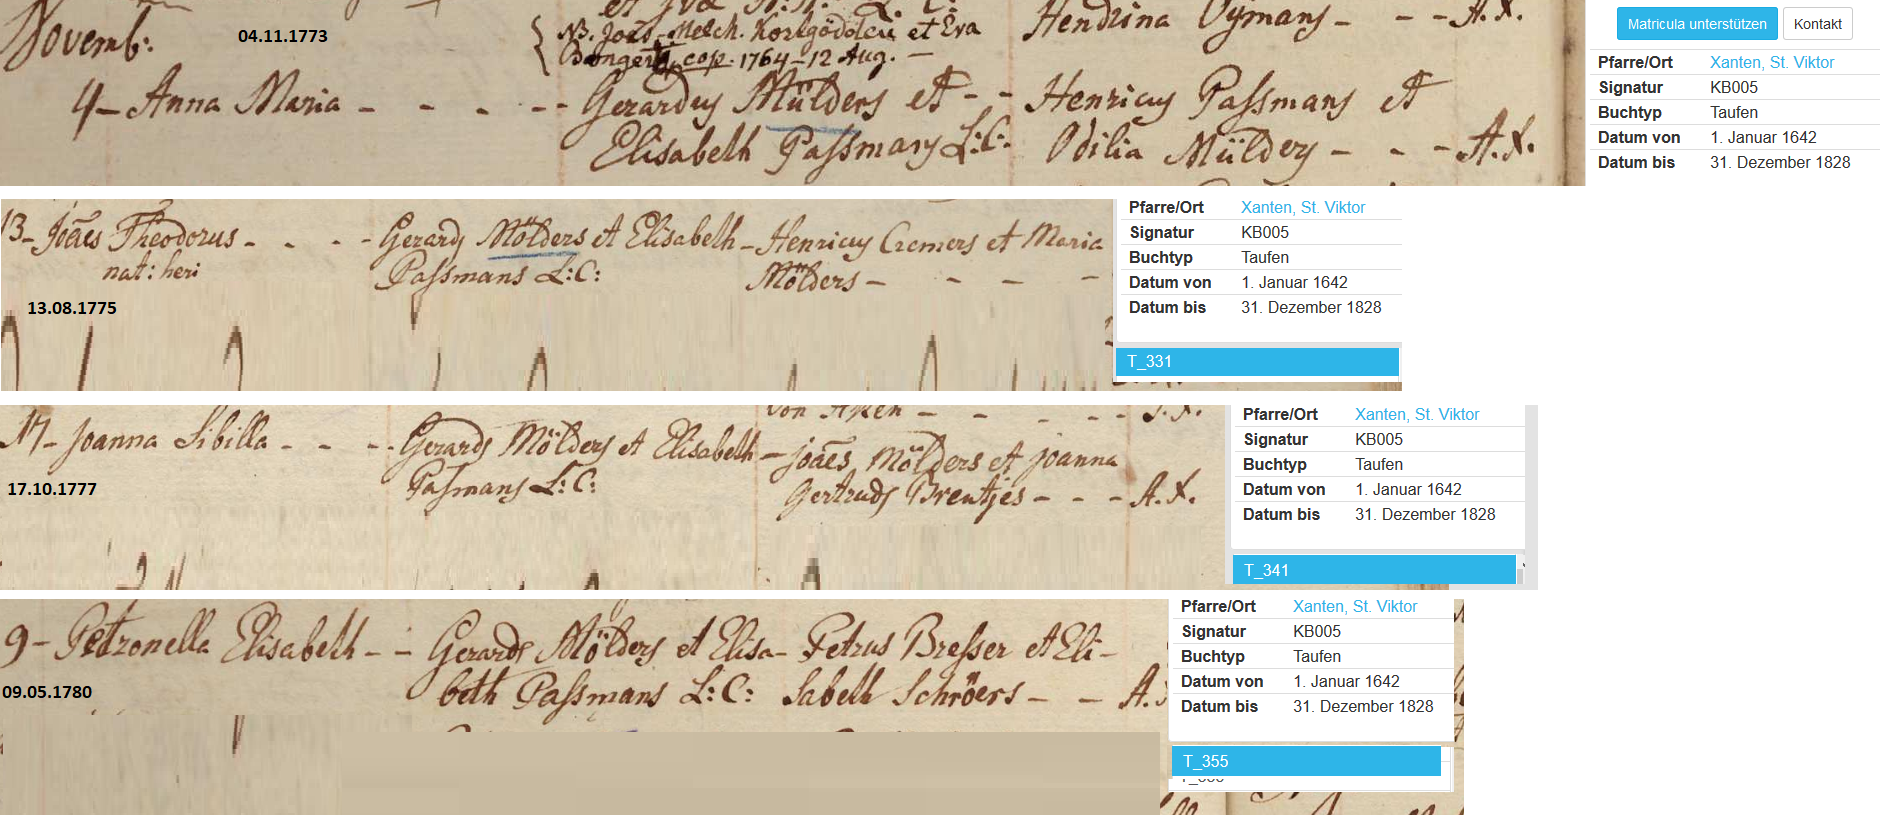 et
Hendrina Oÿmans - - - A.X.
Novemb:
04.11.1773
NB. Joës. Melch. et Eva
cop. 1764-12 Aug. -
4- Anna Maria - - - - - Gerardus Mülders et - - Henricus Passmans et
Elisabeth Passmans L:C: Odilia Mülders - - - A.X.
Matricula unterstützen
Kontakt
Pfarre/Ort Xanten, St. Viktor
Signatur KB005
Buchtyp Taufen
Datum von 1. Januar 1642
Datum bis 31. Dezember 1828
13- Joães Theodorus - - - - Gerards Mölders et Elisabeth - Henricus Cremers et Maria
nat: heri Passmans L:C: Mölders - - - -
13.08.1775
Pfarre/Ort Xanten, St. Viktor
Signatur KB005
Buchtyp Taufen
Datum von 1. Januar 1642
Datum bis 31. Dezember 1828
T_331
von Aken - - - - -
17- Joanna Sibilla - - - - Gerards Mölders et Elisabeth - joães Mölders et joanna
Passmans L:C: Gertruds Brentjes - - - A.X.
17.10.1777
Pfarre/Ort Xanten, St. Viktor
Signatur KB005
Buchtyp Taufen
Datum von 1. Januar 1642
Datum bis 31. Dezember 1828
T_341
9- Petronella Elisabeth - - Gerards Mölders et Elisa- Petrus Bresser et Eli-
beth Passmans L:C: sabeth Schröers - - A.
09.05.1780
Pfarre/Ort Xanten, St. Viktor
Signatur KB005
Buchtyp Taufen
Datum von 1. Januar 1642
Datum bis 31. Dezember 1828
T_355